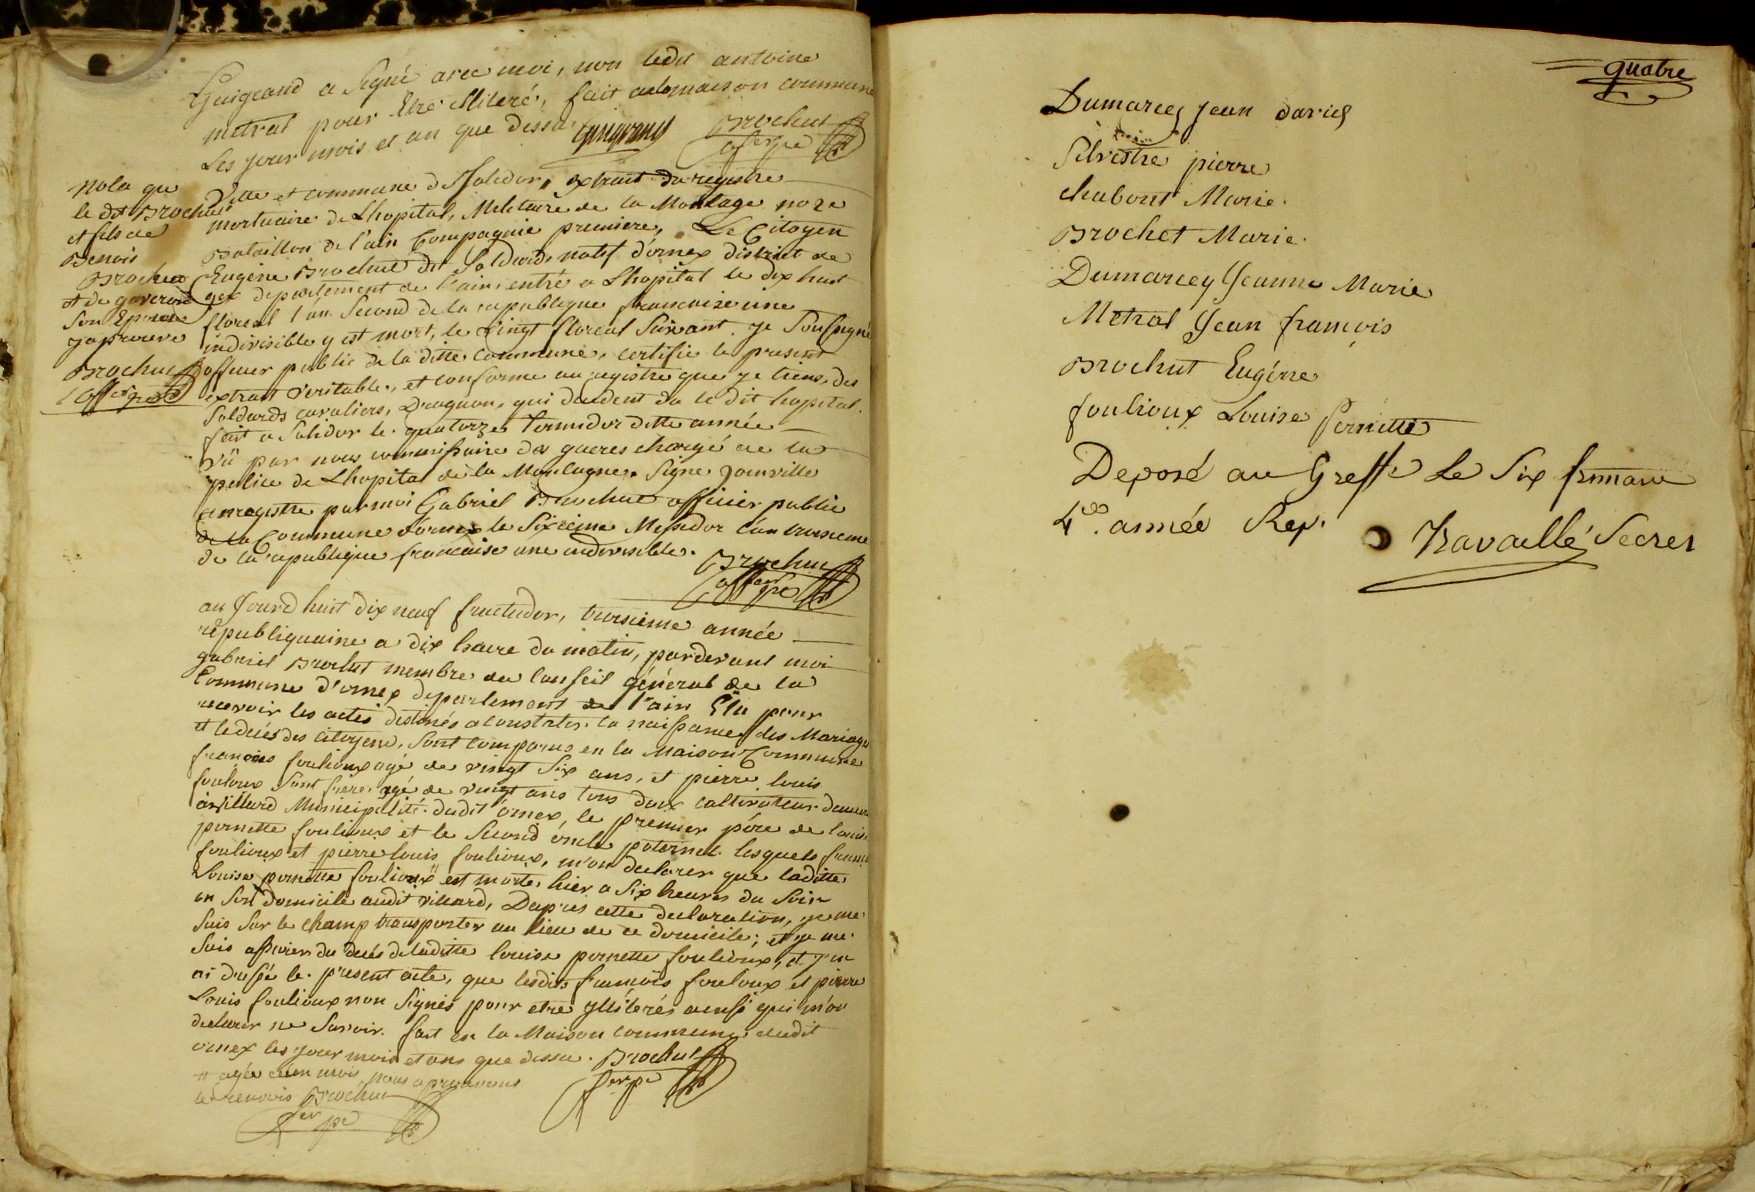 Guigrand a signé avec moi, non ledit antoine
métral pour être illiteré, fait a la maison commune
Les jour mois et an que dessu Guigrand Brochut
offier pc
Ditte et commune de Solidor, extrait du registre
mortuaire de Lhopital, Militaire de la Montagne no 2e
Bataillon de l'ain Compagnie premiere, Le Citoyen
Eugene Brochut dit Soldards natif d'ornex district de
gex departement de l'ain, entré a Lhopital le dix huit
floreal l'an Second de la republique francaise une
indivisible y est mort, le vingt floreal Suivant. je Soussigné
officier public de la ditte Commune, certifie le present
extrait veritable, et conforme au registre que je tiens, des
Soldards cavaliers, Dragnons, qui decedent da le dit hopital.
fait a Solidor le quatorze termidor ditte année
Vû par nous commissaire des gueres chargé de la
police de Lhopital de la Montagne. Signe Joinville
enregistre par moi Gabriel Brochut officier public
de la Commune d'ornex le Sixieime Messidor l'an troisieme
de la republique francaise une indivisible.
Brochut
offier pc
nota que
le dit Brochut
et fils de
Benois
Brochut
et de
Son Epouse
japrouve
Brochut
offier pc
au Jourd huit dix neuf fructudor, troisieme année
republiquaine a dix heure du matin, pardevant moi
gabriel Brochut membre du Conseil général de la
Commune d'ornex departement de l'ain Elu pour
recevoir les actes destinés a Constater la naissances des Mariage
et le décés des citoyens, Sont comparus en la Maison Commune
francois foulioux agé de vingt Six ans, et pierre louis
fouloux Sont frere agé de vingt ans tous deux cultivateur demeur
a villard Municipalité dudit ornex, le premier pére de louise
pernette foulioux et le Second oncle paternel lesquels francois
foulioux et pierre louis foulioux, m'on declarer que laditte
Louise pernette foulioux est morte hier a Six heures du Soir
en Son domicile audit villard, Daprés cette declaration, je me
Suis Sur le champ transporter au lieu de ce domicile; et je me
Suis assurer du décés de laditte louise pernette foulioux, et j'en
ai dressé le present acte, que lesdits francois fouloux et pierre
Louis foulioux non Signés pour etre illiterés ainsi qui m'on
declarer ne Savoir. fait en la Maison commune dudit
ornex les jour mois et ans que dessu. Brochut
offier pc
agée d'un mois nous aprouvons
le renvois Brochut
offier pc
quatre
Dumarcey Jean David
Silvestre pierre
chabont Marie.
Brochet Marie.
Dumarcey Jeanne Marie
Metral Jean françois
Brochut Eugéne
foulioux Louise Pernette
Deposé au Greffe Le Six frimaire
4e. année Rep.
Travaillé Secret